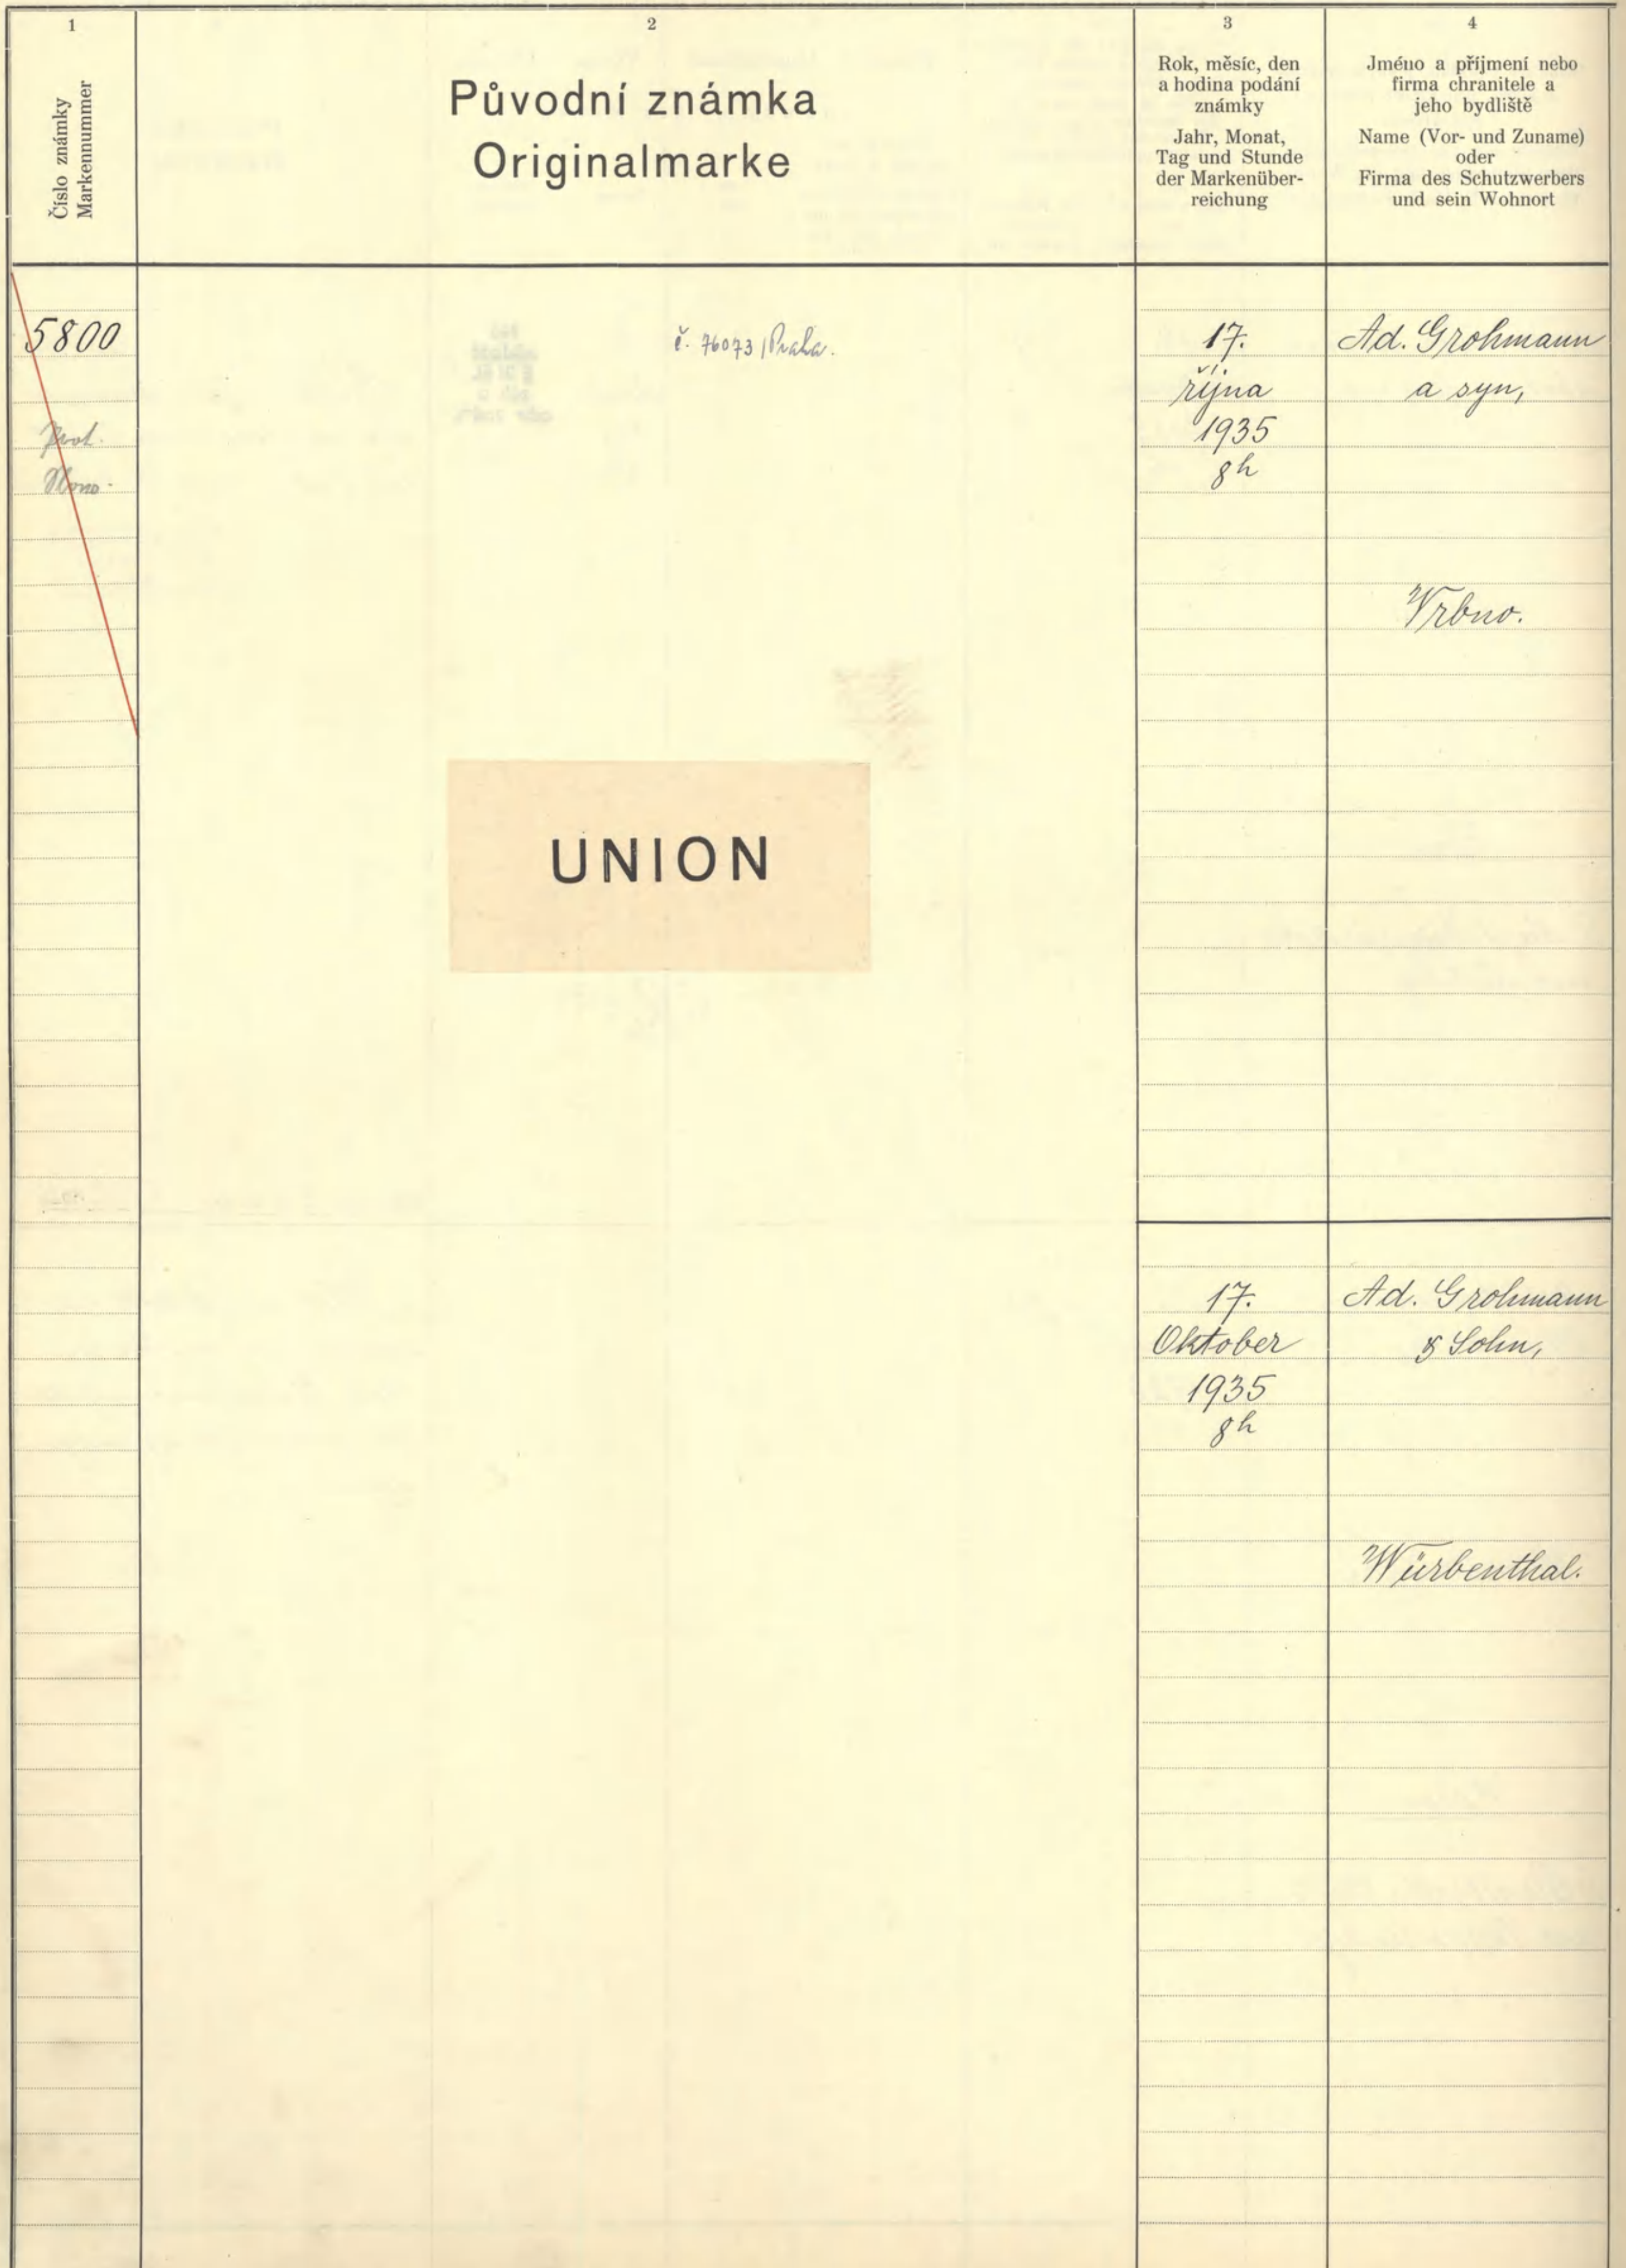 1
Číslo známky
Markennummer
2
Původní známka
Originalmarke
3
Rok, měsíc, den
a hodina podání
známky
Jahr, Monat,
Tag und Stunde
der Markenüber-
reichung
4
Jméno a příjmení nebo
firma chranitele a
jeho bydliště
Name (Vor- und Zuname)
oder
Firma des Schutzwerbers
und sein Wohnort
5800
Prot.
č. 76073/Praha.
17.
října
1935
8h
Ad. Grohmann
a syn,
Vrbno.
UNION
17.
Oktober
1935
8h
Ad. Grohmann
& Sohn,
Würbenthal.